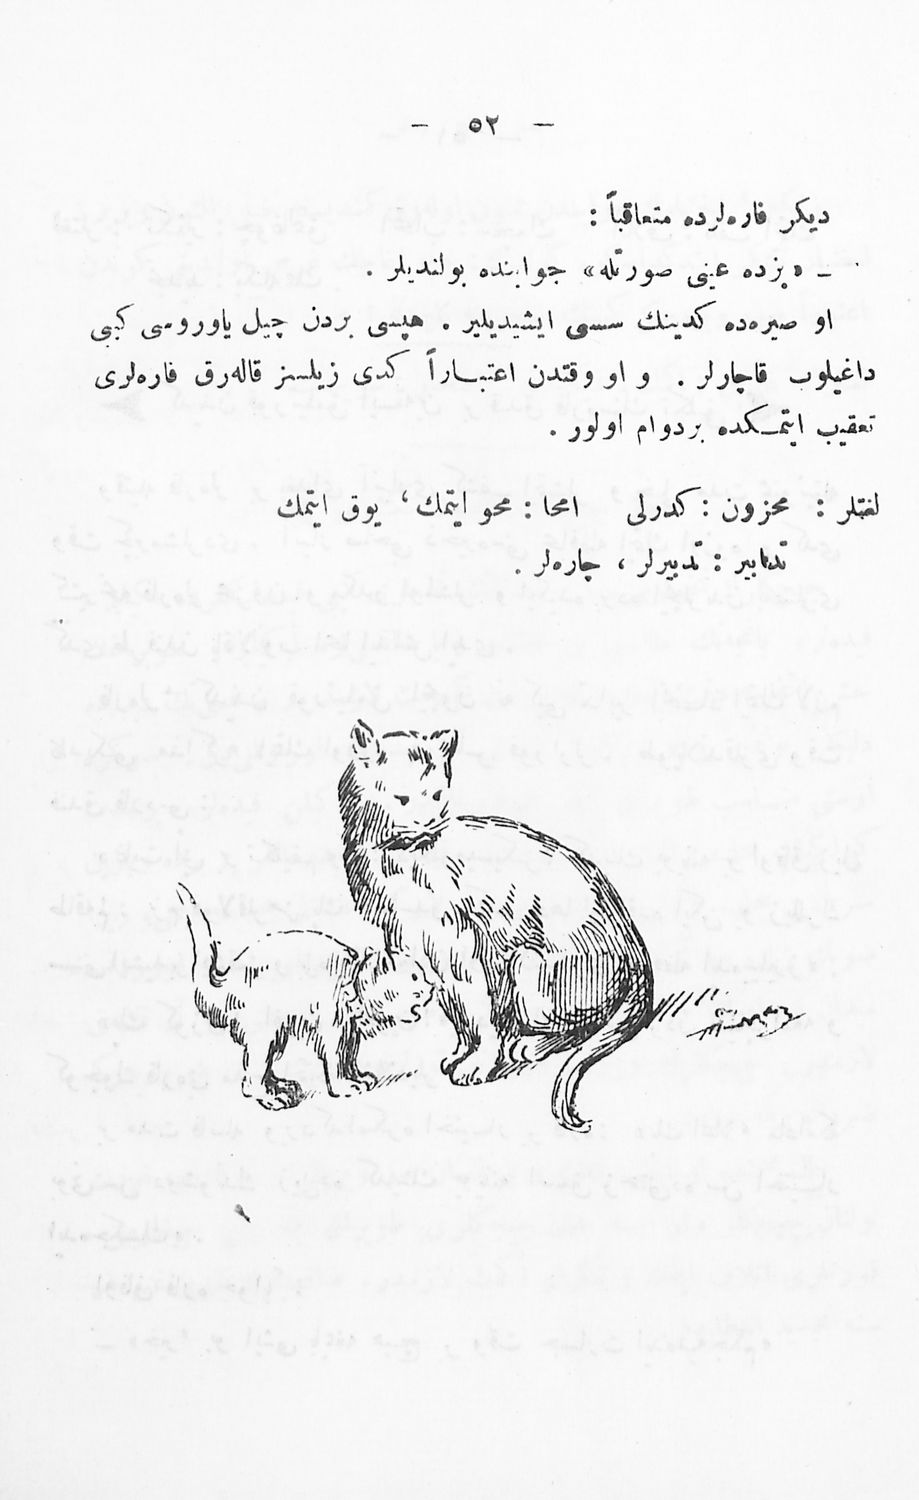 — ٥٢ —
ديكر فاره‌لرده متعاقباً :
ـ « بزده عينى صورتله » جوابنده بولنديلر .
او صيره‌ده كدينك سسى ايشيديلير . هپسى بردن چيل ياوروسى كبى
داغيلوب قاچارلر . و او وقتدن اعتباراً كدى زيلسز قاله‌رق فاره‌لرى
تعقيب ايتمكده بردوام اولور .
لغتلر : محزون : كدرلى امحا : محو ايتمك ، يوق ايتمك
تدابير : تدبيرلر ، چاره‌لر .